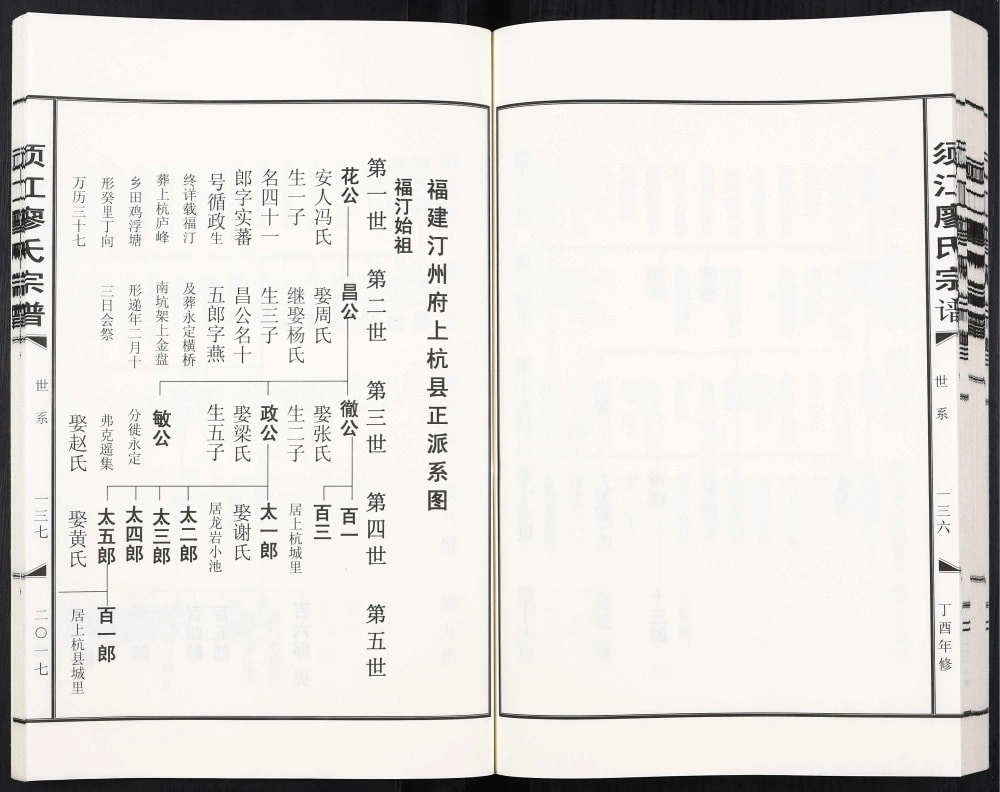 须江廖氏宗谱
世系
一三六
丁酉年修
福建汀州府上杭县正派系图
福汀始祖
第一世
第二世
第三世
第四世
第五世
花公
安人冯氏
生一子
名四十一
郎字实蕃
号循政生
终详载福汀
葬上杭庐峰
乡田鸡浮塘
形癸里丁向
万历三十七
昌公
娶周氏
继娶杨氏
生三子
昌公名十
五郎字燕
及葬永定横桥
南坑架上金盘
形递年二月十
三日会祭
徹公
娶张氏
生二子
政公
娶梁氏
生五子
敏公
分徙永定
弗克遥集
娶赵氏
百一
百三
居上杭城里
太一郎
娶谢氏
居龙岩小池
太二郎
太三郎
太四郎
太五郎
娶黄氏
百一郎
居上杭县城里
须江廖氏宗谱
世系
一三七
二〇一七